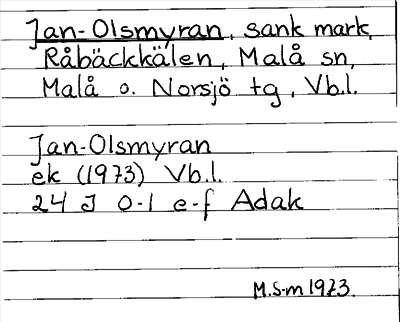 Jan-Olsmyran, sank mark,
Råbäckkälen, Malå sn,
Malå o. Norsjö tg, Vb.l.
Jan-Olsmyran
ek (1973) Vb.l.
24 J 0-1 e-f Adak
M.S-m 1973.